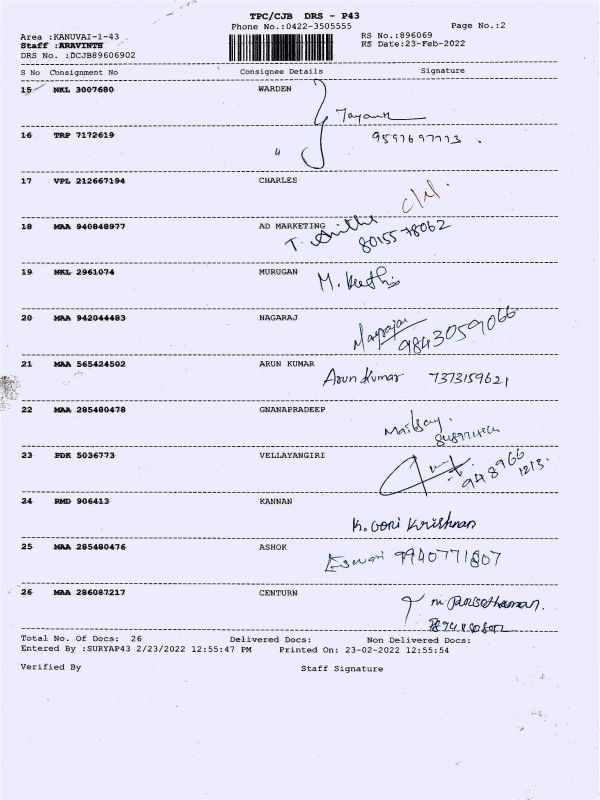 TPC/CJB DRS - P43
Phone No.:0422-3505555 Page No.:2
Area :KANUVAI-1-43 RS No.:896069
Staff :ARAVINTH RS Date:23-Feb-2022
DRS No. :DCJB89606902
S No Consignment No Consignee Details Signature
15 NKL 3007680 WARDEN
16 TRP 7172619 9597697773 .
17 VPL 212667194 CHARLES
18 MAA 940848977 AD MARKETING
8015578062
19 NKL 2961074 MURUGAN
20 MAA 942044483 NAGARAJ
9843059066
21 MAA 565424502 ARUN KUMAR
Arun Kumar 7373159621
22 MAA 285480478 GNANAPRADEEP
23 PDK 5036773 VELLAYANGIRI
948966
1213.
24 RMD 906413 KANNAN
K. Gori Krishnan
25 MAA 285480476 ASHOK
Eswari 9940771807
26 MAA 286087217 CENTURN
Total No. Of Docs: 26 Delivered Docs: Non Delivered Docs:
Entered By :SURYAP43 2/23/2022 12:55:47 PM Printed On: 23-02-2022 12:55:54
Verified By Staff Signature